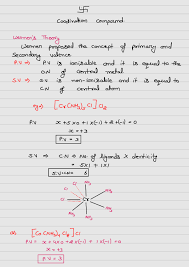 Coordination Compound
Werner's Theory
Werner proposed the concept of primary and
Secondary valence
P.V ⇒ P.V is ionizable and it is equal to the
O.N of central metal.
S.V ⇒ S.V is non-ionizable and it is equal to
C.N of central atom
eg ⇒ [Cr(NH₃)₅Cl]Cl₂
P.V x+5x0+1x(-1)+2x(-1)=0
x=+3
P.V = 3
S.V ⇒ C.N = No of ligands x denticity
= 5x1 + 1x1
NH₃
NH₃
Cr
NH₃
NH₃
P.V = 3